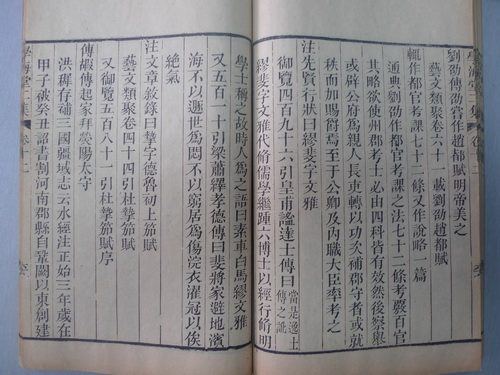 劉劭傳劭嘗作趙都賦明帝美之
藝文類聚卷六十一載劉劭趙都賦
輒作都官考課七十二條又作說略一篇
通典劉劭作都官考課之法七十二條考覈百官
其略欲使州郡考士必由四科皆有效然後察舉
或辟公府爲親人長吏轉以功次補郡守者或就
秩而加賜爵焉至于公卿及內職大臣率考之
注先賢行狀曰繆斐字文雅
御覽四百九十六引皇甫謐達士傳曰當是逸士傳之訛
繆斐字文雅代脩儒學繼踵六博士以經行脩明
學士稱之故時人爲之語曰素車白馬繆文雅
又五百一十引梁蕭繹孝德傳曰斐將家避地濱
海不以遯世爲悶不以窮居爲傷浣衣濯冠以俟
絶氣
注文章敘錄曰摯字德魯初上笳賦
藝文類聚卷四十四引杜摯笳賦
又御覽五百八十一引杜摯笳賦序
傅嘏傳起家拜滎陽太守
洪稚存補三國疆域志云水經注正始三年歲在
甲子被癸丑詔書割河南郡縣自鞏闕以東創建
學海堂二集
卷十二